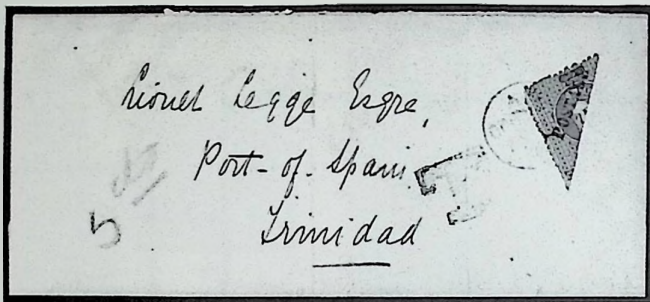 Lionel Legge Esqre,
Port-of-Spain
Trinidad
T
5